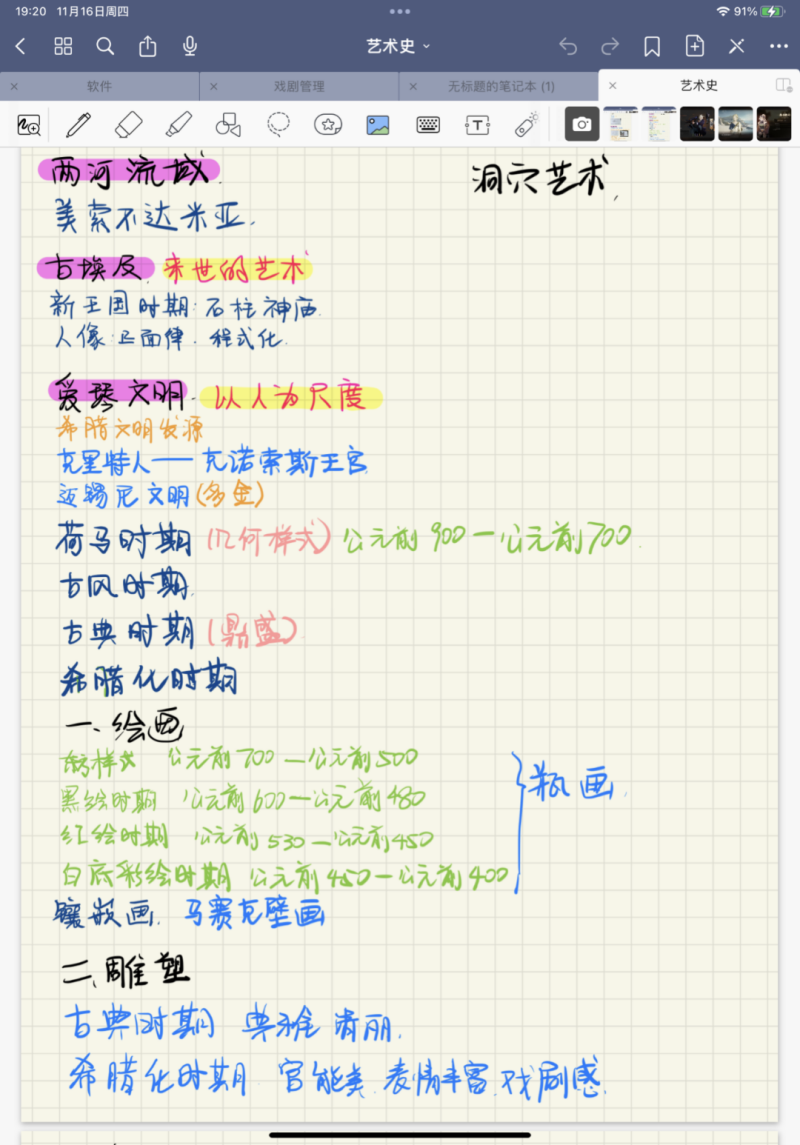 19:20 11月16日周四
91%
艺术史
软件
戏剧管理
无标题的笔记本 (1)
艺术史
两河流域
洞穴艺术
美索不达米亚.
古埃及 来世的艺术
新王国时期:石柱神庙
人像:正面律.程式化.
爱琴文明. 以人为尺度
希腊文明发源
克里特人——克诺索斯王宫
迈锡尼文明(多金)
荷马时期(几何样式)公元前900—公元前700
古风时期.
古典时期(鼎盛)
希腊化时期
一、绘画
东方样式 公元前700—公元前500
黑绘时期 公元前600—公元前480
红绘时期 公元前530—公元前450
白底彩绘时期 公元前450—公元前400
瓶画
镶嵌画. 马赛克壁画
二、雕塑
古典时期 典雅清丽.
希腊化时期 官能美.表情丰富.戏剧感.